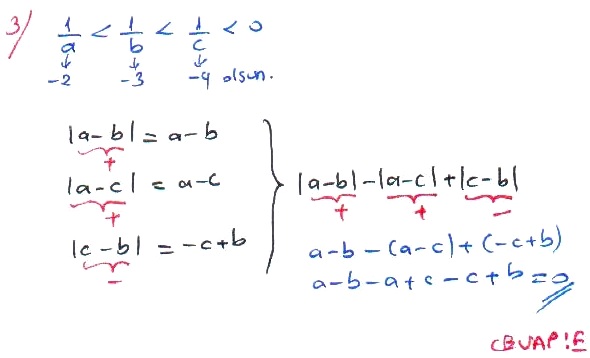 3) 1/a < 1/b < 1/c < 0
↓ ↓ ↓
-2 -3 -4 olsun.
|a-b| = a-b
+
|a-c| = a-c
+
|c-b| = -c+b
-
|a-b|-|a-c|+|c-b|
+ + -
a-b-(a-c)+(-c+b)
a-b-a+c-c+b=0
CEVAP:E